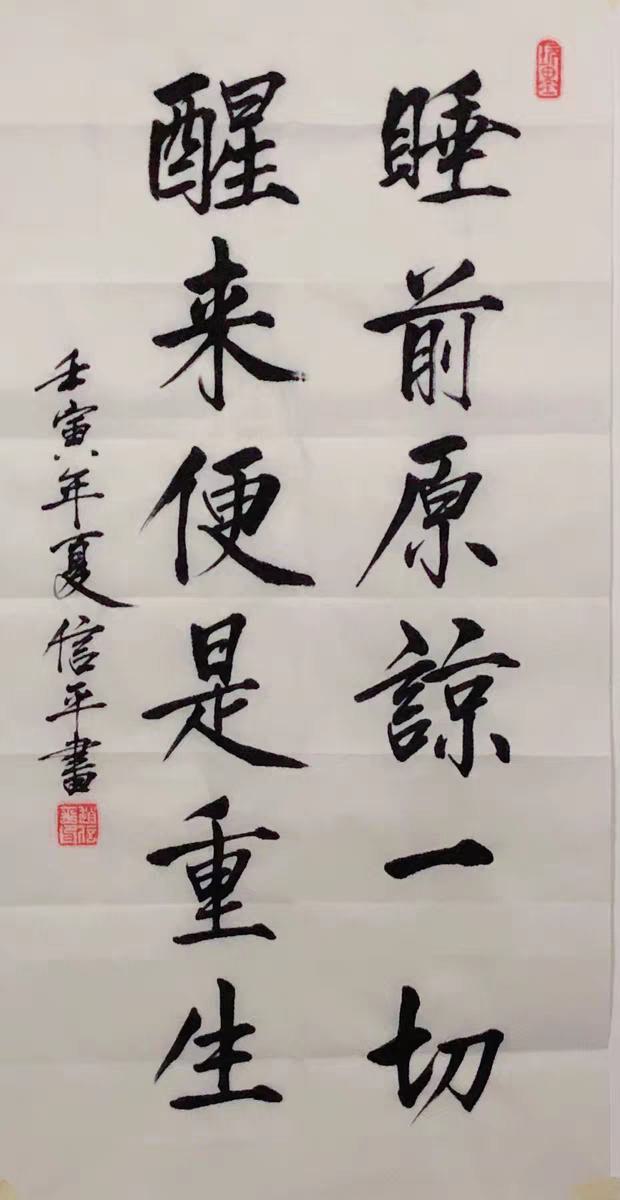 睡前原諒一切
醒来便是重生
壬寅年夏信平書